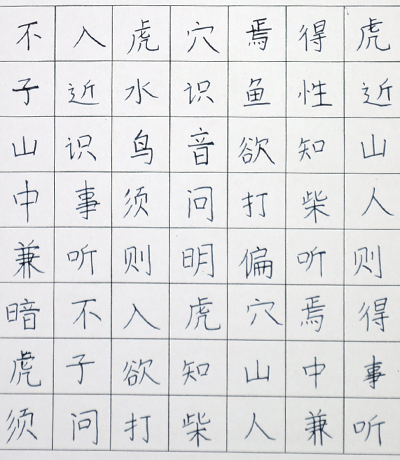 不入虎穴焉得虎
子近水识鱼性近
山识鸟音欲知山
中事须问打柴人
兼听则明偏听则
暗不入虎穴焉得
虎子欲知山中事
须问打柴人兼听